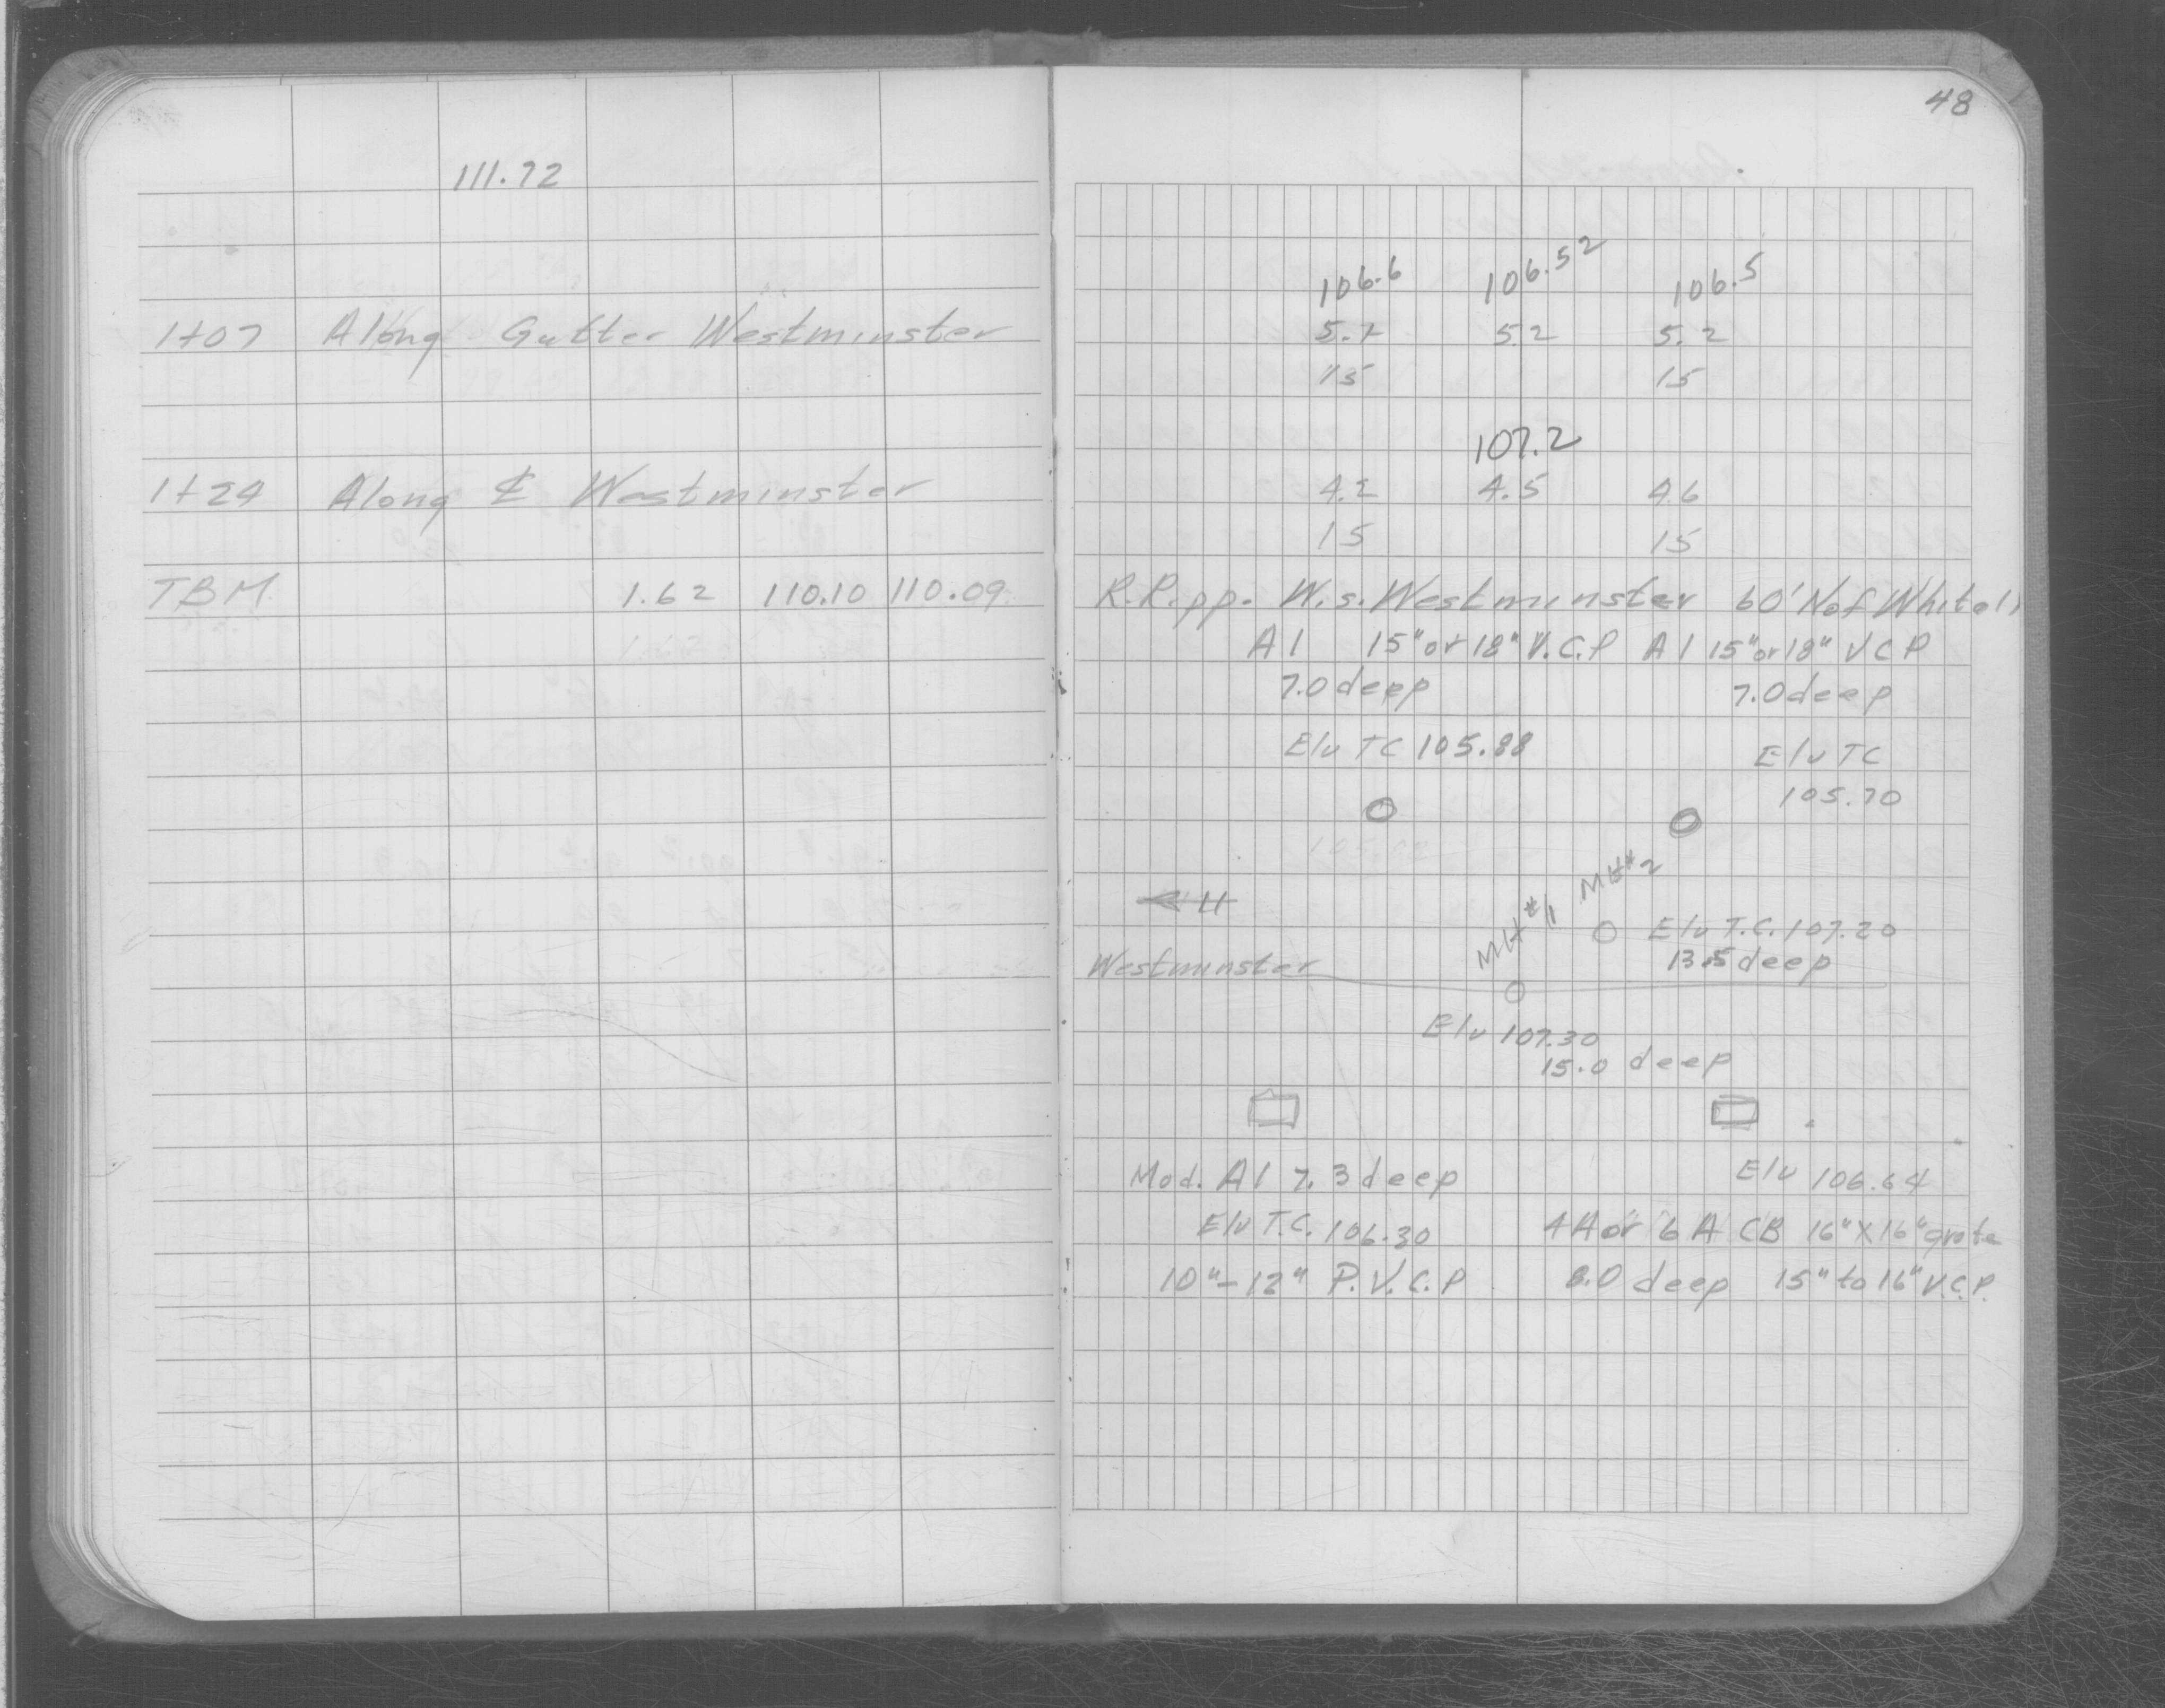 48
111.72
106.6 106.52 106.5
1+07 Along Gutter Westminster 5.2 5.2
15 15
107.2
1+24 Along ℄ Westminster 4.2 4.5 4.6
15 15
TBM 1.62 110.10 110.09 R.R.pp. W.s. Westminster 60' N of
A1 15" or 18" V.C.P A1 15" or 18" VCP
7.0 deep 7.0 deep
Elv TC 105.88 Elv TC
105.70
MH#1 MH#2
N
Elv T.C. 107.20
Westminster 13.5 deep
Elv 107.30
15.0 deep
Mod. A1 7.3 deep Elv 106.64
Elv T.C. 106.30 4A or 6A CB 16" X 16" grate
10"-12" P.V.C.P deep 15" to 16" V.C.P.